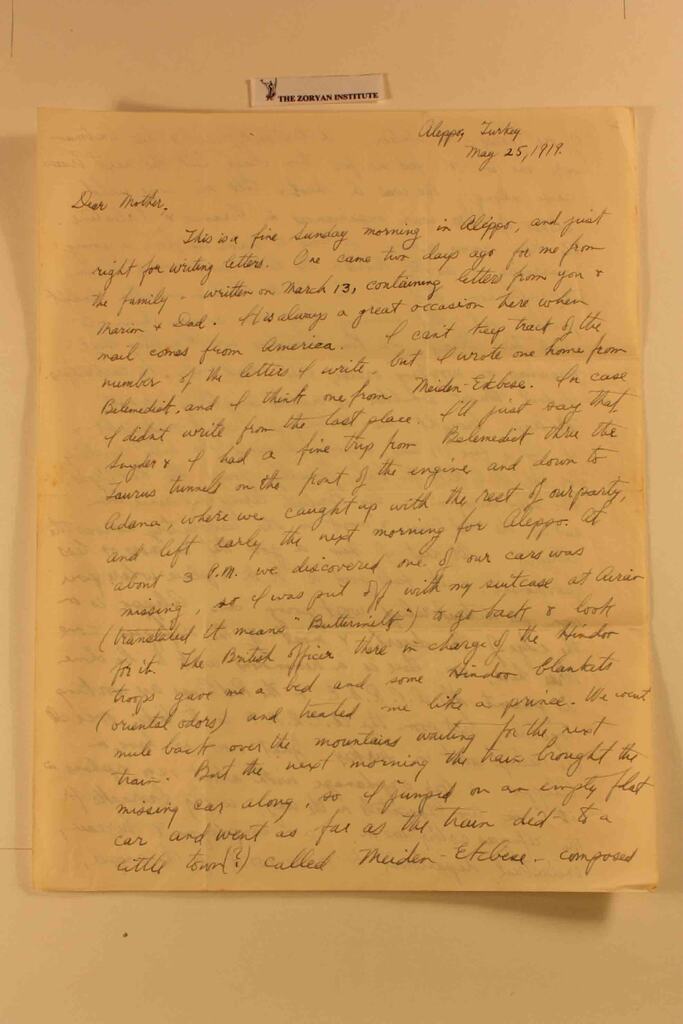 THE ZORYAN INSTITUTE
Aleppo, Turkey
May 25, 1919.
Dear Mother,
This is a fine Sunday morning in Aleppo, and just
right for writing letters. One came two days ago for me from
the family - written on March 13, containing letters from you &
Marion & Dad. It is always a great occasion here when
mail comes from America. I can't keep track of the
number of the letters I write, but I wrote one home from
Belemedict, and I think one from Meiden-Ekbese. In case
I didnt write from the last place. I'll just say that
Snyder & I had a fine trip from Belemedict thru the
Taurus tunnels on the front of the engine and down to
Adana, where we caught up with the rest of our party,
and left early the next morning for Aleppo. At
about 3 P.M. we discovered one of our cars was
missing, so I was put off with my suitcase at Airan
(translated it means "Buttermilk") to go back & look
for it. The British officer there in charge of the Hindoo
troops gave me a bed and some Hindoo blankets
(oriental odors) and treated me like a prince. We went
mule back over the mountains waiting for the next
train. But the next morning the train brought the
missing car along, so I jumped on an empty flat
car and went as far as the train did - to a
little town(?) called Meiden-Ekbese - composed